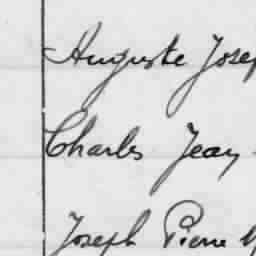 Auguste Josep
Charles Jean
Joseph Pierre